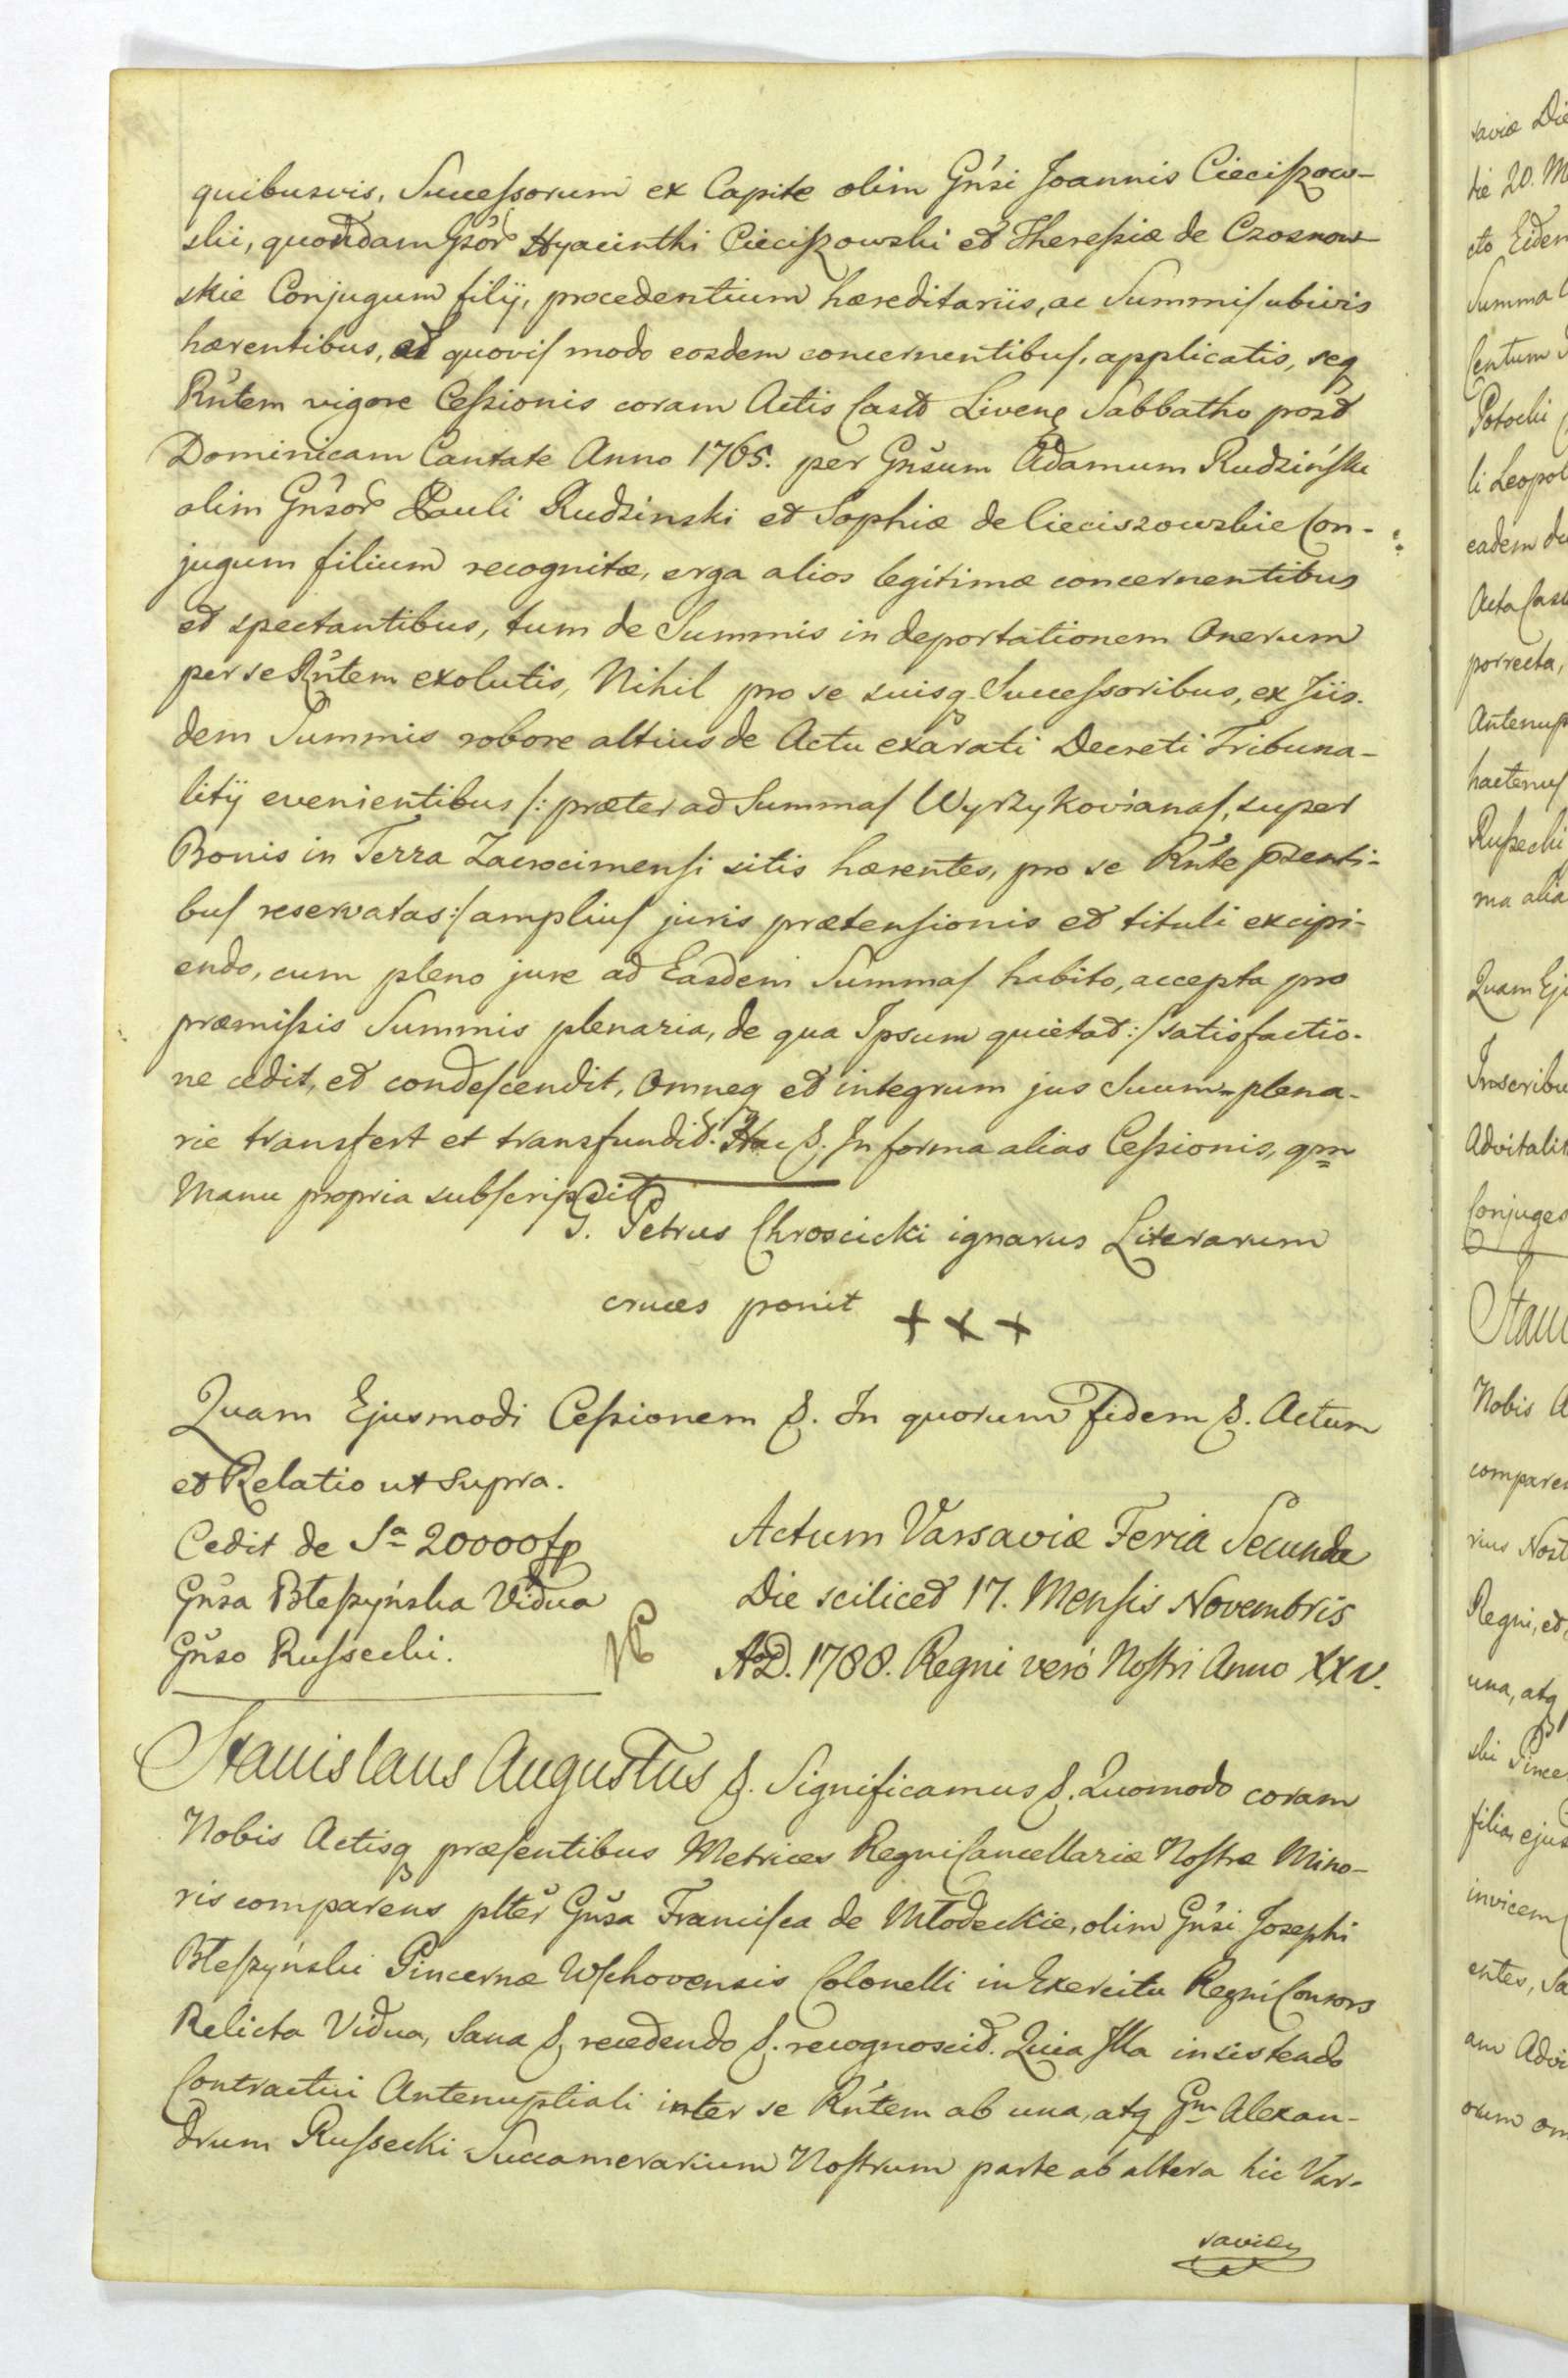 quibusvis, Successorum ex Capite olim Gn̄si Joannis Cieciszow-
ski, quondam Gsōr Hyacinthi Cieciszowski et Theressiæ de Czosnow-
skie Conjugum filij, procedentium hæreditariis, ac Summis ubivis
hærentibus, et quovis modo eosdem concernentibus, applicatis, seq
Rn̄tem vigore Cessionis coram Actis Castr Livenę Sabbatho post
Dominicam Cantate Anno 1765. per Gnsum Adamum Rudziński
olim Gn̄sor Pauli Rudzinski et Sophiæ de Cieciszowskie Con-
jugum filium recognitæ, erga alios legitimæ concernentibus
et spectantibus, tum de Summis in deportationem Onerum
per se Rn̄tem exolutis, Nihil pro se suisq Successoribus, ex Jiis-
dem Summis robore altius de Actu exarati Decreti Tribuna-
litij evenientibus /: præter ad Summas Wyrzykovianas, super
Bonis in Terra Zacrocimensi sitis hærentes, pro se Rn̄te præsenti-
bus reservatas :/ amplius juris prætensionis et tituli excipi-
endo, cum pleno jure ad Easdem Summas habito, accepta pro
præmissis Summis plenaria, de qua Ipsum quietat :/ satisfactio-
ne cedit, et condescendit, Omneq et integrum jus Suum plena-
rie transfert et transfundit. Hac &. In forma alias Cessionis, qm
Manu propria subscripsit
G. Petrus Chroscicki ignarus Literarum
cruces ponit + + +
Quam Ejusmodi Cessionem &. In quorum Fidem &. Actum
et Relatio ut Supra.
Cedit de Sa 20000 fp
Gn̄sa Błeszyńska Vidua
Gn̄so Russecki.
Actum Varsaviæ Feria Secunda
Die scilicet 17. Mensis Novembris
A.D. 1788. Regni verò Nostri Anno XXV.
Stanislaus Augustus &. Significamus &. Quomodo coram
Nobis Actisq præsentibus Metrices Regni Cancellariæ Nostræ Mino-
ris comparens pltēr Gn̄sa Francisca de Młodeckie, olim Gn̄si Josephi
Błeszyński Pincernæ Wschovensis Colonelli in Exercitu Regni Consors
Relicta Vidua, Sana &, recedendo &. recognoscit. Quia Illa insistendo
Contractui Antenuptiali inter se Rn̄tem ab una, atq Gm Alexan-
drum Russecki Succamerarium Nostrum parte ab altera hic Var-
saviæ
saviæ Die
die 20. M
cto Eiden
Summa
Centum
Potocki
li Leopol
eadem du
Acta Cast
porrecta,
Antenup
hactenus
Russecki
ma alia
Quam Ej
Inscribu
Advitalit
Conjuges
Stani
Nobis A
comparen
rius Nost
Regni, et
una, atq
ski Pince
filias ejus
invicem
entes, Sa
am Advi
orum om